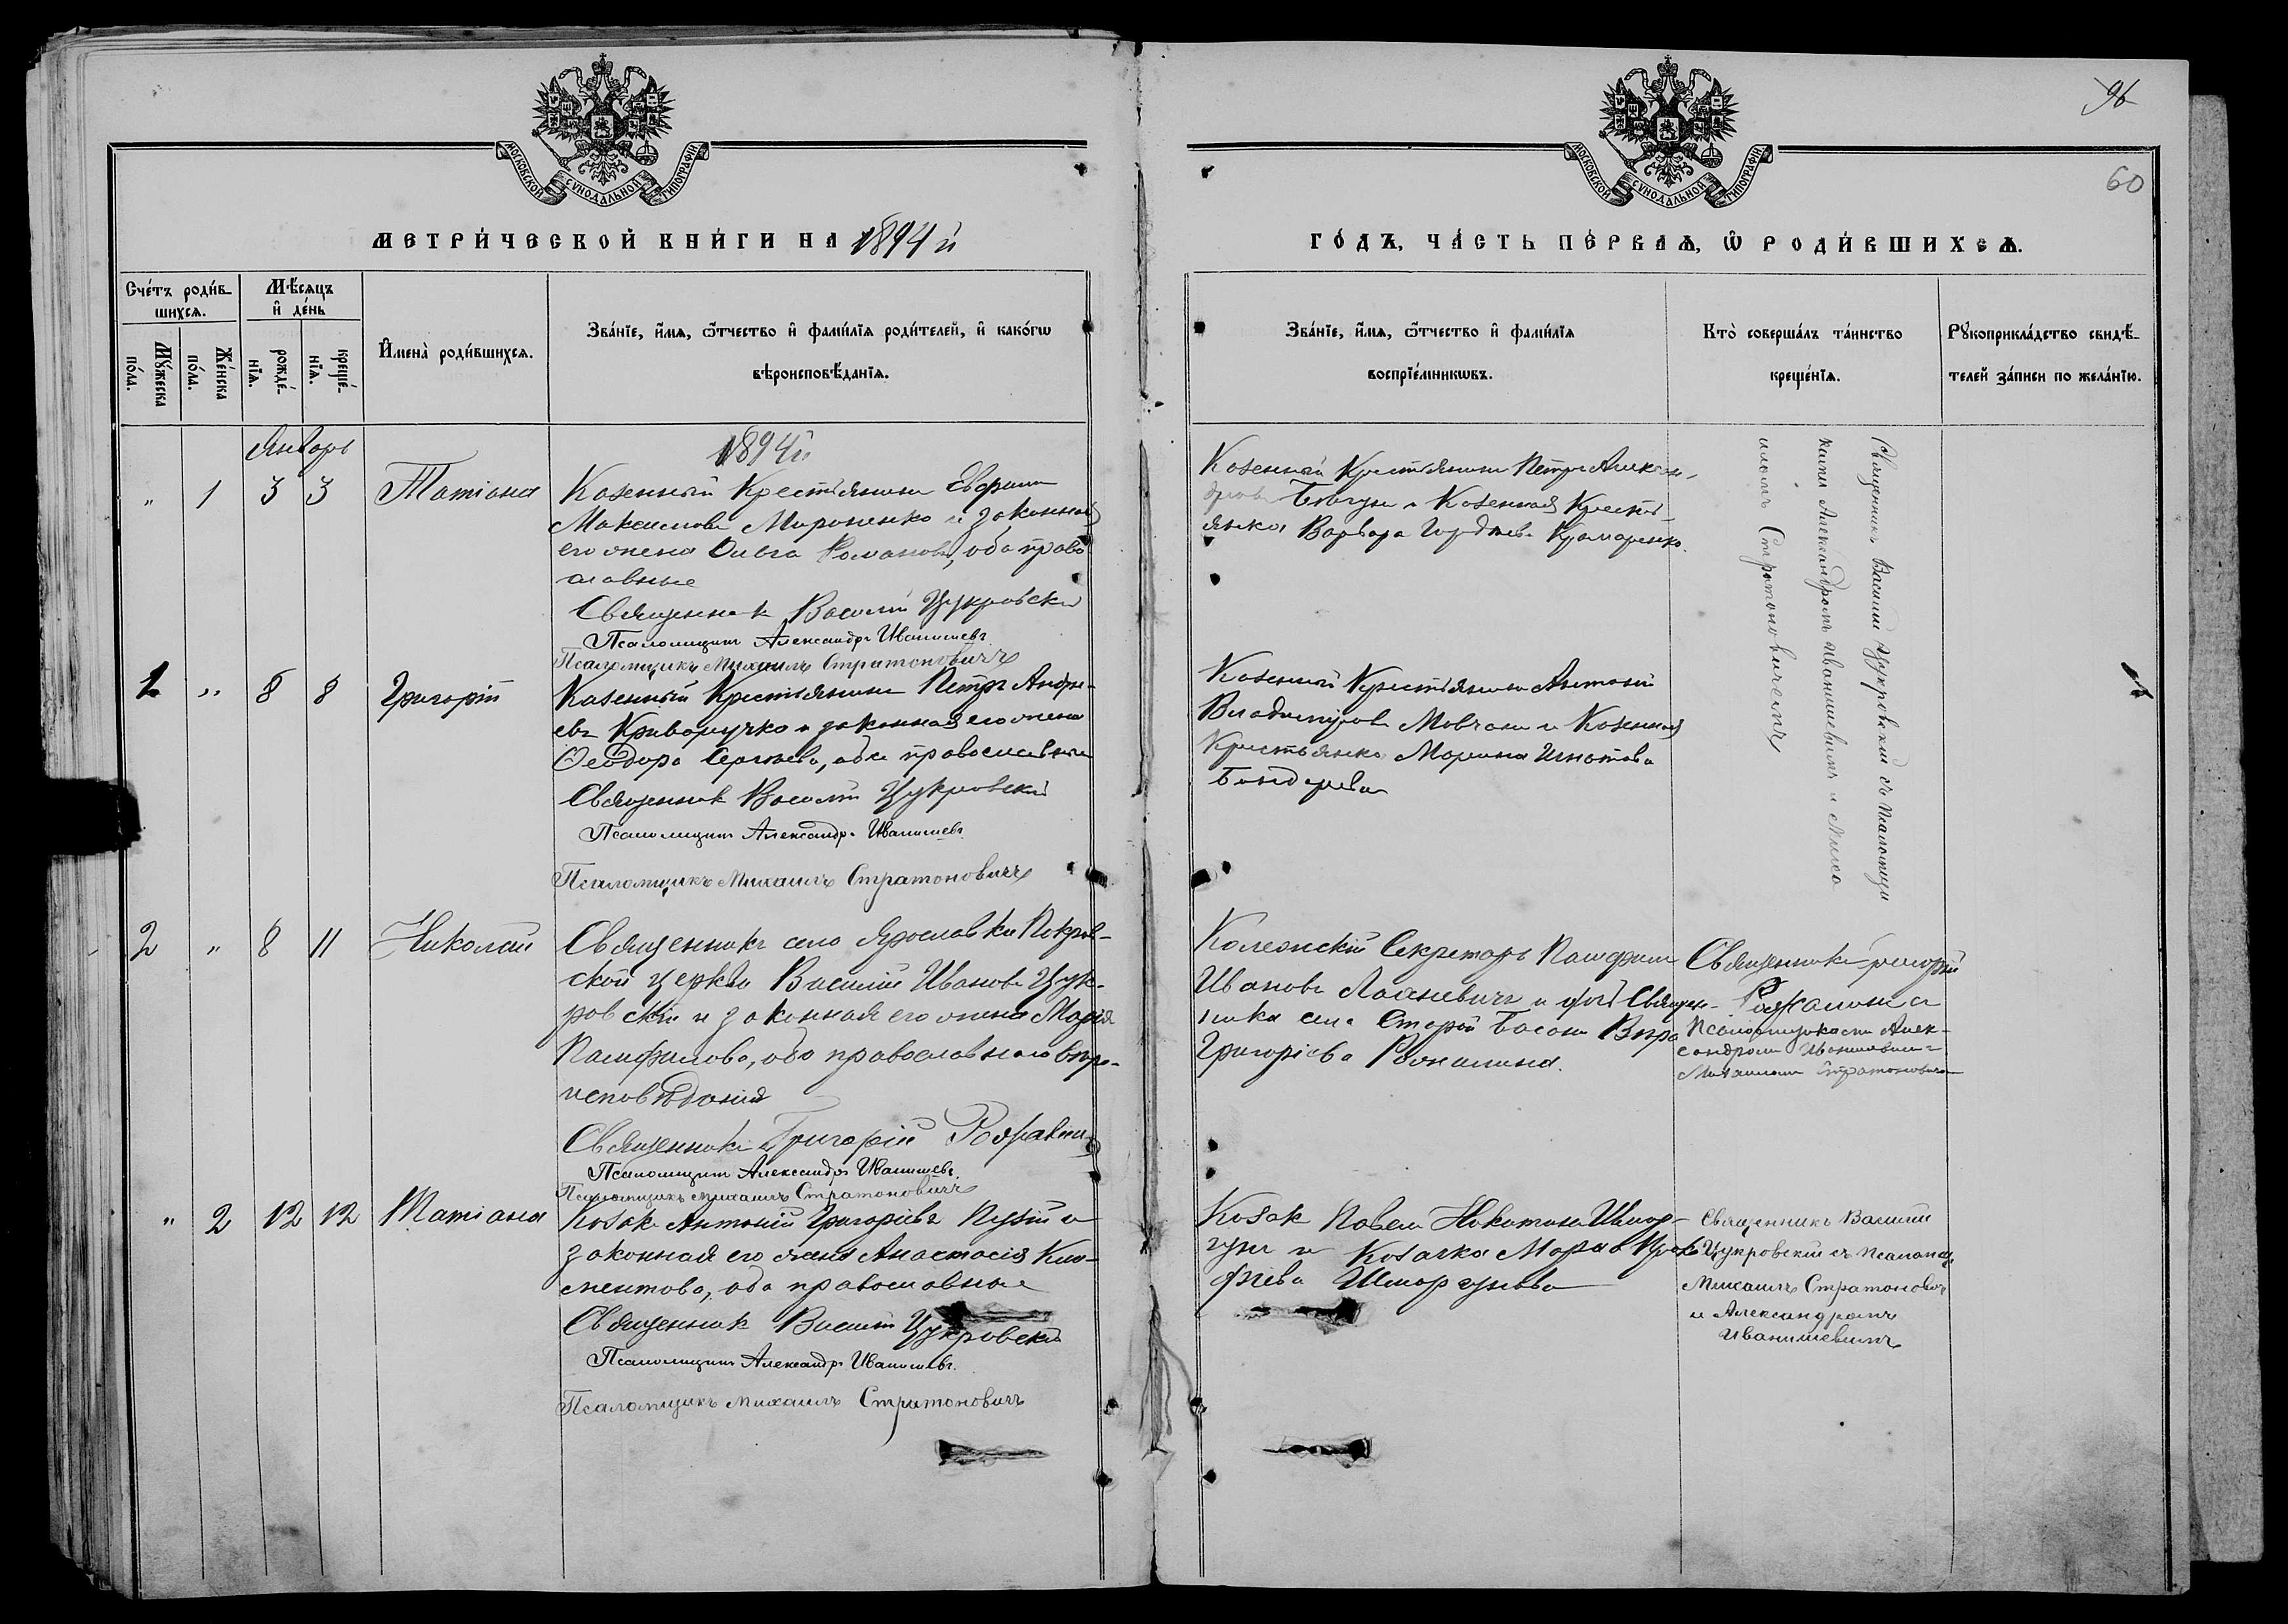 96
60
МОСКОВСКОЙ СѴНОДАЛЬНОЙ ТИПОГРАФІИ
МОСКОВСКОЙ СѴНОДАЛЬНОЙ ТИПОГРАФІИ
МЕТРИ́ЧЕСКОЙ КНИ́ГИ НА 1894 й
ГО́ДЪ, ЧА́СТЬ ПЕ́РВАѦ, Ѡ РОДИ́ВШИХСѦ.
Сче́тъ роди́в-
шихсѧ.
Мꙋ́жеска по́ла.
Же́нска по́ла.
Мѣ́сѧцъ
и҆ де́нь
рожде́-нїѧ.
креще́-нїѧ.
И҆мена̀ роди́вшихсѧ.
Зва́нїе, и҆́мѧ, ѻ҆́тчество и҆ фами́лїѧ роди́телей, и҆ како́гѡ
вѣроисповѣ́данїѧ.
Зва́нїе, и҆́мѧ, ѻ҆́тчество и҆ фами́лїѧ
воспрїе́мникѡвъ.
Кто̀ соверша́лъ та́инство
креще́нїѧ.
Рꙋкоприкла́дство свидѣ́-
телей за́писи по жела́нїю.
Январь
1894й
" 1 3 3 Татіана
Казенный Крестьянинъ Евфимій
Максимовъ Мироненко и законная
его жена Ольга Романова, оба право
славные
Священникъ Василій Цукровскій
Псаломщикъ Александръ Иванишевъ
Псаломщикъ Михаилъ Стратоновичъ
Казенный Крестьянинъ Петръ Алексан-
дровъ Бовгун и Казенная Кресть-
янка Варвара Гордіева Крамаренко.
Священникъ Василій Цукровскій съ Псаломщи
ками Александромъ Иванишевымъ и Миха
иломъ Стратоновичемъ
1 " 8 8 Григорій
Казенный Крестьянинъ Петръ Андре-
евъ Криворучко и законная его жена
Ѳеодора Сергіева, оба православные
Священникъ Василій Цукровскій
Псаломщикъ Александръ Иванишевъ
Псаломщикъ Михаилъ Стратоновичъ
Казенный Крестьянинъ Антоній
Владиміровъ Мовчанъ и Казенная
Крестьянка Марина Игнатова
Бондарева
2 " 8 11 Николай
Священникъ села Ярославки Покров-
ской церкви Василій Ивановъ Цук-
ровскій и законная его жена Марія
Памфилова, оба православнаго вѣро-
исповѣданія
Священникъ Григорій
Псаломщикъ Александръ Иванишевъ
Псаломщикъ Михаилъ Стратоновичъ
Колежскій Секретарь Памфилъ
Ивановъ и дочь Священ-
ника села Старой Басани Вѣра
Григоріева
Священникъ Григорій
съ
Псаломщиками Алек-
сандромъ Иванишевымъ
Михаиломъ Стратоновичемъ
" 2 12 12 Татіана
Козакъ Антоній Григорієвъ и
законная его жена Анастасія Кли-
ментова, оба православные
Священникъ Василій Цукровскій
Псаломщикъ Александръ Иванишевъ
Псаломщикъ Михаилъ Стратоновичъ
Козакъ Павелъ Никитинъ Шмор-
гунъ и Козачка Марѳа Проко-
фіева Шморгунова
Священникъ Василій
Цукровскій съ Псаломщ.
Михаилъ Стратонович
и Александромъ
Иванишевымъ